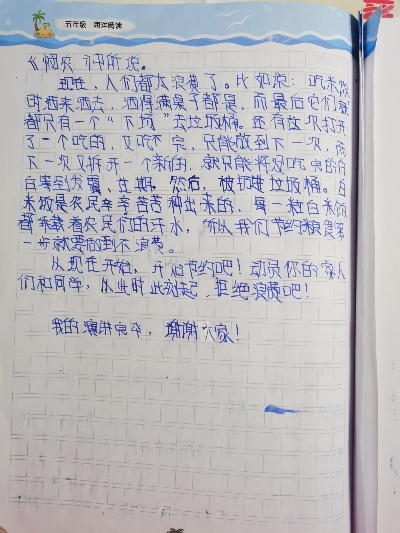 五年级 海洋阅读
《悯农》中所说。
现在，人们都太浪费了。比如说：吃米饭
时洒来洒去，洒得满桌子都是，而最后它们就
都只有一个“下场”去垃圾桶。还有这次打开
了一个吃的，又吃不完，只能放到下一次，而
下一次又拆开一个新的，就只能将没吃完的白
白害到发霉、过期，然后，被扔进垃圾桶。白
米饭是农民辛辛苦苦种出来的，每一粒白米饭
都承载着农民们的汗水，所以我们节约粮食第
一步就要做到不浪费。
从现在开始，开始节约吧！动员你的家人
们和同学，从此时此刻起，拒绝浪费吧！
我的演讲完毕，谢谢大家！